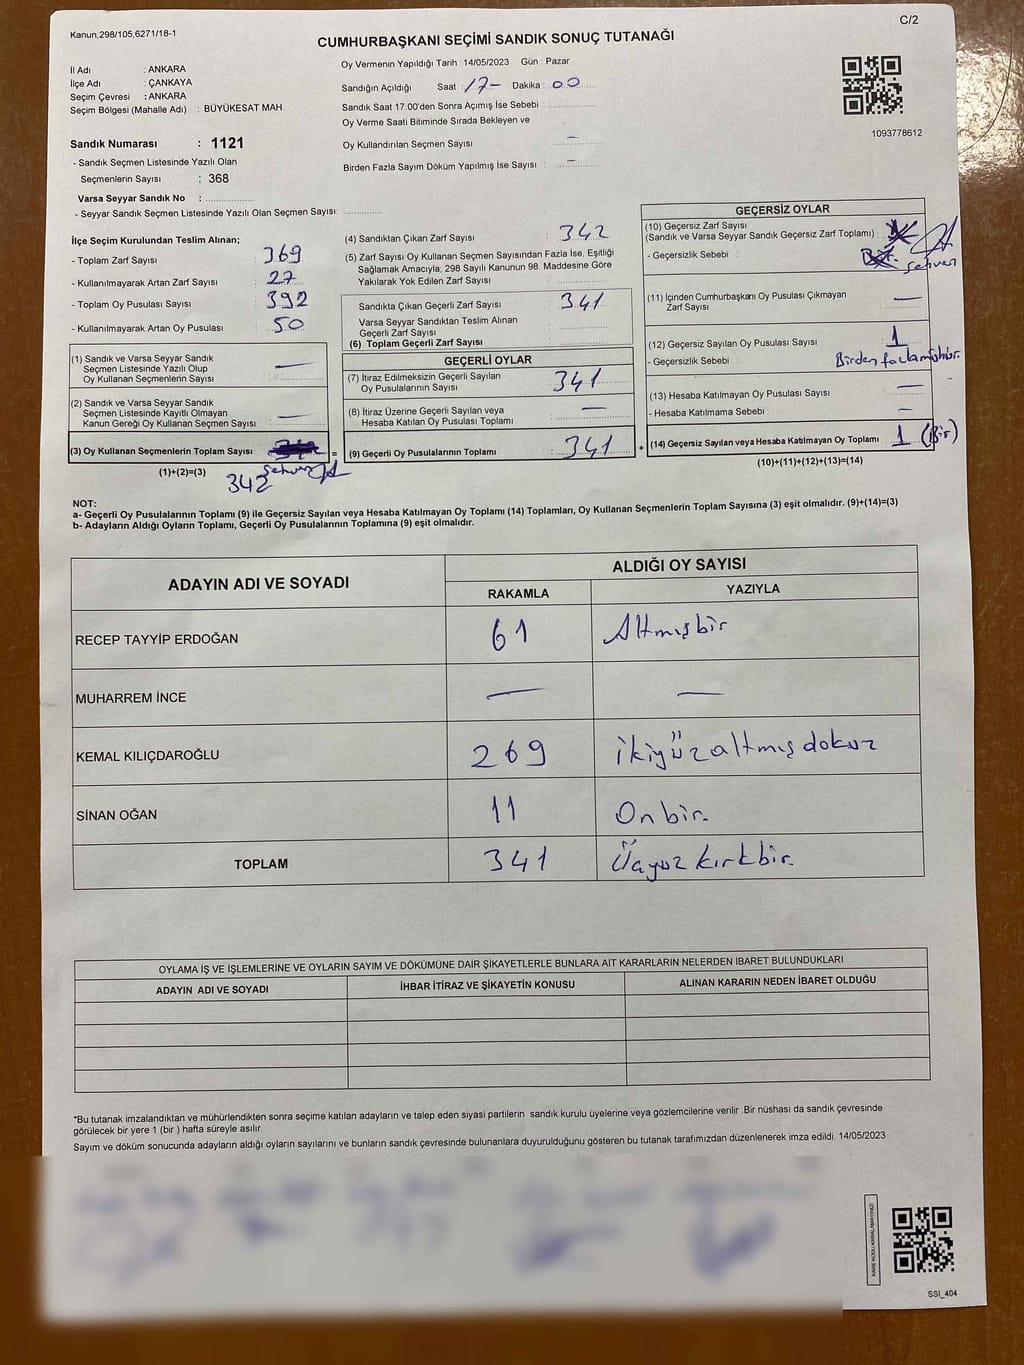 C/2
Kanun,298/105,6271/18-1
CUMHURBAŞKANI SEÇİMİ SANDIK SONUÇ TUTANAĞI
İl Adı : ANKARA
İlçe Adı : ÇANKAYA
Seçim Çevresi : ANKARA
Seçim Bölgesi (Mahalle Adı) : BÜYÜKESAT MAH
Oy Vermenin Yapıldığı Tarih :14/05/2023 Gün : Pazar
Sandığın Açıldığı Saat : 17- Dakika : 00
Sandık Saat 17:00'den Sonra Açımış İse Sebebi :
Oy Verme Saati Bitiminde Sırada Bekleyen ve
Oy Kullandırılan Seçmen Sayısı : —
Birden Fazla Sayım Döküm Yapılmış İse Sayısı : —
1093778612
Sandık Numarası : 1121
- Sandık Seçmen Listesinde Yazılı Olan
Seçmenlerin Sayısı : 368
Varsa Seyyar Sandık No :
- Seyyar Sandık Seçmen Listesinde Yazılı Olan Seçmen Sayısı:
İlçe Seçim Kurulundan Teslim Alınan;
- Toplam Zarf Sayısı : 369
- Kullanılmayarak Artan Zarf Sayısı : 27
- Toplam Oy Pusulası Sayısı : 392
- Kullanılmayarak Artan Oy Pusulası : 50
(1) Sandık ve Varsa Seyyar Sandık
Seçmen Listesinde Yazılı Olup
Oy Kullanan Seçmenlerin Sayısı : —
(2) Sandık ve Varsa Seyyar Sandık
Seçmen Listesinde Kayıtlı Olmayan
Kanun Gereği Oy Kullanan Seçmen Sayısı : —
(3) Oy Kullanan Seçmenlerin Toplam Sayısı
(1)+(2)=(3)
342 sehven
(4) Sandıktan Çıkan Zarf Sayısı : 342
(5) Zarf Sayısı Oy Kullanan Seçmen Sayısından Fazla İse, Eşitliği
Sağlamak Amacıyla, 298 Sayılı Kanunun 98. Maddesine Göre
Yakılarak Yok Edilen Zarf Sayısı :
Sandıkta Çıkan Geçerli Zarf Sayısı : 341
Varsa Seyyar Sandıktan Teslim Alınan
Geçerli Zarf Sayısı :
(6) Toplam Geçerli Zarf Sayısı :
GEÇERLİ OYLAR
(7) İtiraz Edilmeksizin Geçerli Sayılan
Oy Pusulalarının Sayısı : 341
(8) İtiraz Üzerine Geçerli Sayılan veya
Hesaba Katılan Oy Pusulası Toplamı : —
= (9) Geçerli Oy Pusulalarının Toplamı : 341 +
GEÇERSİZ OYLAR
(10) Geçersiz Zarf Sayısı
(Sandık ve Varsa Seyyar Sandık Geçersiz Zarf Toplamı) :
- Geçersizlik Sebebi : sehven
(11) İçinden Cumhurbaşkanı Oy Pusulası Çıkmayan
Zarf Sayısı : —
(12) Geçersiz Sayılan Oy Pusulası Sayısı : 1
- Geçersizlik Sebebi : Birden fazla mühür.
(13) Hesaba Katılmayan Oy Pusulası Sayısı : —
- Hesaba Katılmama Sebebi : —
(14) Geçersiz Sayılan veya Hesaba Katılmayan Oy Toplamı : 1 (Bir)
(10)+(11)+(12)+(13)=(14)
NOT:
a- Geçerli Oy Pusulalarının Toplamı (9) ile Geçersiz Sayılan veya Hesaba Katılmayan Oy Toplamı (14) Toplamları, Oy Kullanan Seçmenlerin Toplam Sayısına (3) eşit olmalıdır. (9)+(14)=(3)
b- Adayların Aldığı Oyların Toplamı, Geçerli Oy Pusulalarının Toplamına (9) eşit olmalıdır.
ADAYIN ADI VE SOYADI
ALDIĞI OY SAYISI
RAKAMLA YAZIYLA
RECEP TAYYİP ERDOĞAN 61 Altmışbir
MUHARREM İNCE — —
KEMAL KILIÇDAROĞLU 269 ikiyüzaltmışdokuz
SİNAN OĞAN 11 Onbir.
TOPLAM 341 Üçyüzkırkbir.
OYLAMA İŞ VE İŞLEMLERİNE VE OYLARIN SAYIM VE DÖKÜMÜNE DAİR ŞİKAYETLERLE BUNLARA AİT KARARLARIN NELERDEN İBARET BULUNDUKLARI
ADAYIN ADI VE SOYADI İHBAR İTİRAZ VE ŞİKAYETİN KONUSU ALINAN KARARIN NEDEN İBARET OLDUĞU
*Bu tutanak imzalandıktan ve mühürlendikten sonra seçime katılan adayların ve talep eden siyasi partilerin sandık kurulu üyelerine veya gözlemcilerine verilir .Bir nüshası da sandık çevresinde
görülecek bir yere 1 (bir ) hafta süreyle asılır.
Sayım ve döküm sonucunda adayların aldığı oyların sayılarını ve bunların sandık çevresinde bulunanlara duyurulduğunu gösteren bu tutanak tarafımızdan düzenlenerek imza edildi. 14/05/2023
KARE KODU KARALAMAYINIZ!
SSI_404